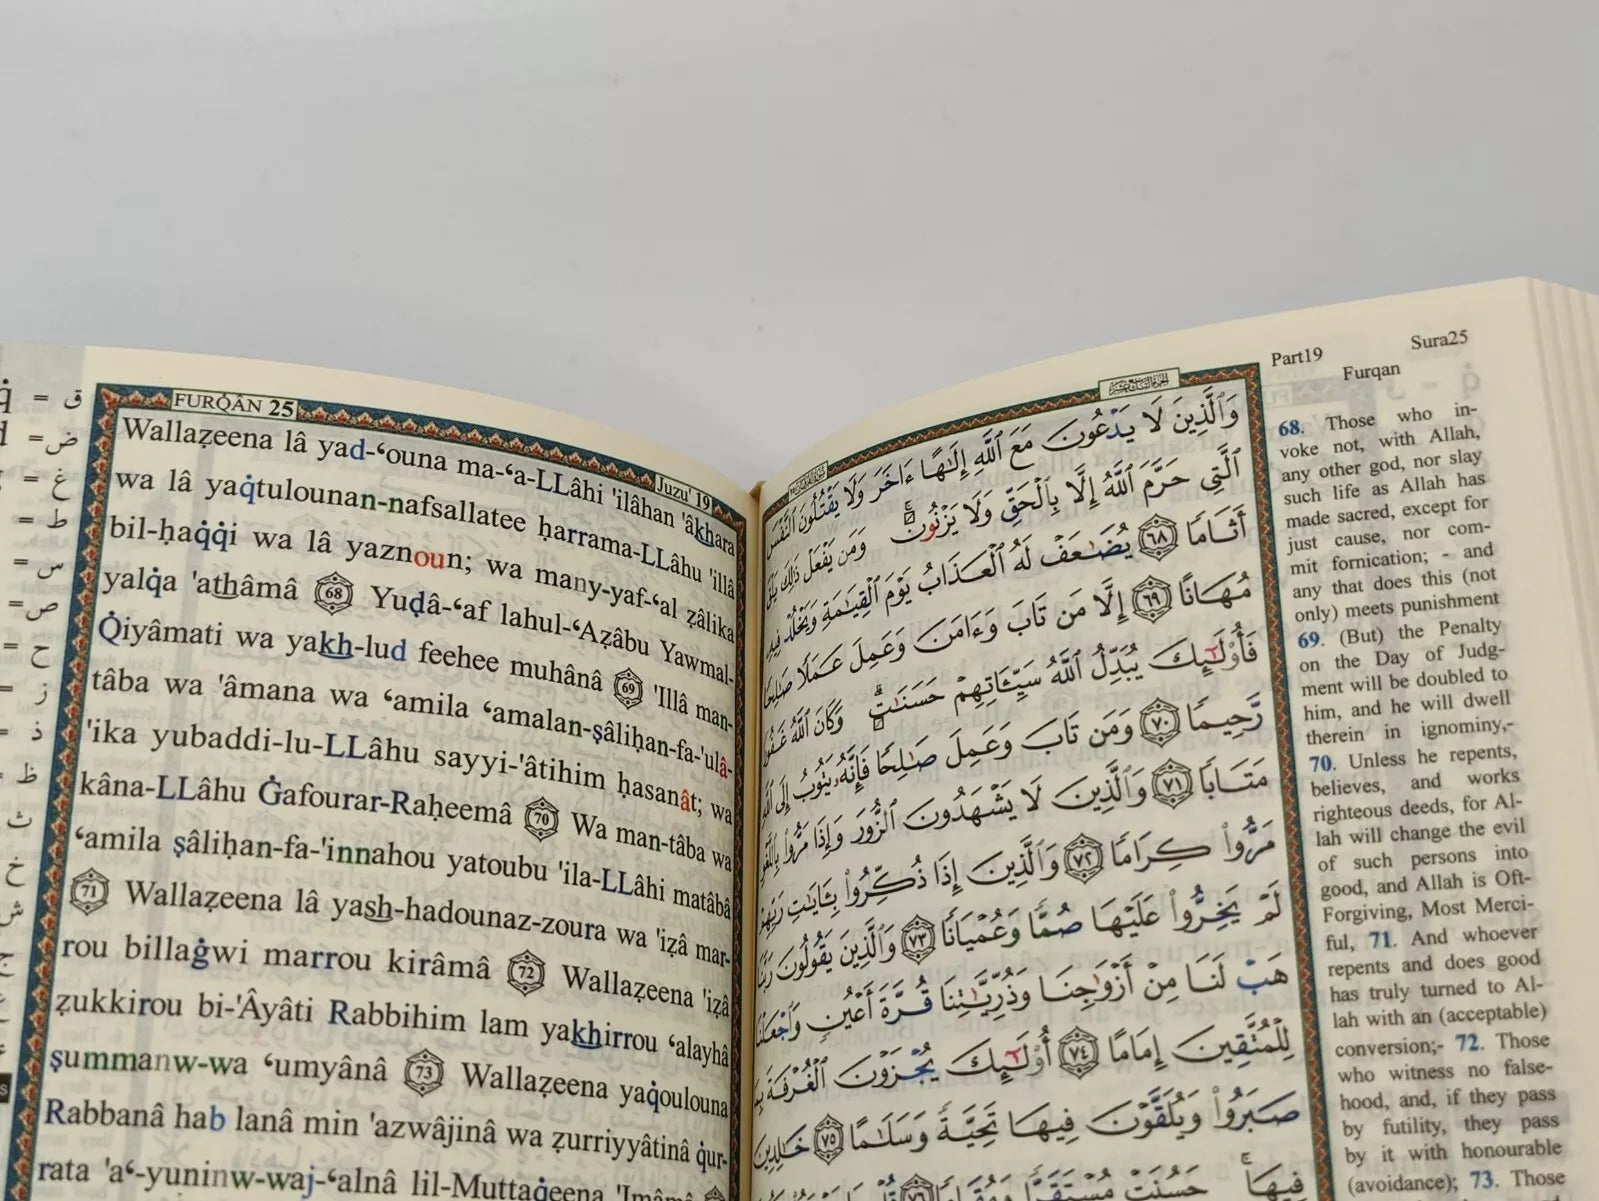 q̇ = ق
d = ض
= غ
= ط
= س
= ص
= ح
= ز
= ذ
= ظ
ث
خ
ش
ج
FURQ̇ÂN 25
Juzu' 19
Wallaẓeena lâ yad-ʻouna ma-ʻa-LLâhi 'ilâhan 'âkhara
wa lâ yaq̇tulounan-nafsallatee ḥarrama-LLâhu 'illâ
bil-ḥaq̇q̇i wa lâ yaznoun; wa many-yaf-ʻal ẓâlika
yalq̇a 'athâmâ 68 Yuḍâ-ʻaf lahul-ʻAẓâbu Yawmal-
Q̇iyâmati wa yakh-lud feehee muhânâ 69 'Illâ man-
tâba wa 'âmana wa ʻamila ʻamalan-ṣâliḥan-fa-'ulâ-
'ika yubaddi-lu-LLâhu sayyi-'âtihim ḥasanât; wa
kâna-LLâhu Ġafourar-Raḥeemâ 70 Wa man-tâba wa
ʻamila ṣâliḥan-fa-'innahou yatoubu 'ila-LLâhi matâbâ
71 Wallaẓeena lâ yash-hadounaz-zoura wa 'iẓâ mar-
rou billaġwi marrou kirâmâ 72 Wallaẓeena 'iẓâ
ẓukkirou bi-'Âyâti Rabbihim lam yakhirrou ʻalayhâ
ṣummanw-wa ʻumyânâ 73 Wallaẓeena yaq̇oulouna
Rabbanâ hab lanâ min 'azwâjinâ wa ẓurriyyâtinâ q̇ur-
rata 'aʻ-yuninw-waj-ʻalnâ lil-Muttaq̇eena 'Imâmâ
وَٱلَّذِينَ لَا يَدْعُونَ مَعَ ٱللَّهِ إِلَٰهًا ءَاخَرَ وَلَا يَقْتُلُونَ ٱلنَّفْسَ
ٱلَّتِى حَرَّمَ ٱللَّهُ إِلَّا بِٱلْحَقِّ وَلَا يَزْنُونَ ۚ وَمَن يَفْعَلْ ذَٰلِكَ يَلْقَ
أَثَامًا ٦٨ يُضَٰعَفْ لَهُ ٱلْعَذَابُ يَوْمَ ٱلْقِيَٰمَةِ وَيَخْلُدْ فِيهِۦ
مُهَانًا ٦٩ إِلَّا مَن تَابَ وَءَامَنَ وَعَمِلَ عَمَلًا صَٰلِحًا
فَأُو۟لَٰٓئِكَ يُبَدِّلُ ٱللَّهُ سَيِّـَٔاتِهِمْ حَسَنَٰتٍ ۗ وَكَانَ ٱللَّهُ غَفُورًا
رَّحِيمًا ٧٠ وَمَن تَابَ وَعَمِلَ صَٰلِحًا فَإِنَّهُۥ يَتُوبُ إِلَى ٱللَّهِ
مَتَابًا ٧١ وَٱلَّذِينَ لَا يَشْهَدُونَ ٱلزُّورَ وَإِذَا مَرُّوا۟ بِٱللَّغْوِ
مَرُّوا۟ كِرَامًا ٧٢ وَٱلَّذِينَ إِذَا ذُكِّرُوا۟ بِـَٔايَٰتِ رَبِّهِمْ
لَمْ يَخِرُّوا۟ عَلَيْهَا صُمًّا وَعُمْيَانًا ٧٣ وَٱلَّذِينَ يَقُولُونَ رَبَّنَا
هَبْ لَنَا مِنْ أَزْوَٰجِنَا وَذُرِّيَّٰتِنَا قُرَّةَ أَعْيُنٍ وَٱجْعَلْنَا
لِلْمُتَّقِينَ إِمَامًا ٧٤ أُو۟لَٰٓئِكَ يُجْزَوْنَ ٱلْغُرْفَةَ بِمَا
صَبَرُوا۟ وَيُلَقَّوْنَ فِيهَا تَحِيَّةً وَسَلَٰمًا ٧٥ خَٰلِدِينَ
فِيهَا ۚ حَسُنَتْ مُسْتَقَرًّا وَمُقَامًا ٧٦ قُلْ
Part19 Furqan Sura25
68. Those who in-
voke not, with Allah,
any other god, nor slay
such life as Allah has
made sacred, except for
just cause, nor com-
mit fornication; - and
any that does this (not
only) meets punishment
69. (But) the Penalty
on the Day of Judg-
ment will be doubled to
him, and he will dwell
therein in ignominy,-
70. Unless he repents,
believes, and works
righteous deeds, for Al-
lah will change the evil
of such persons into
good, and Allah is Oft-
Forgiving, Most Merci-
ful, 71. And whoever
repents and does good
has truly turned to Al-
lah with an (acceptable)
conversion;- 72. Those
who witness no false-
hood, and, if they pass
by futility, they pass
by it with honourable
(avoidance); 73. Those